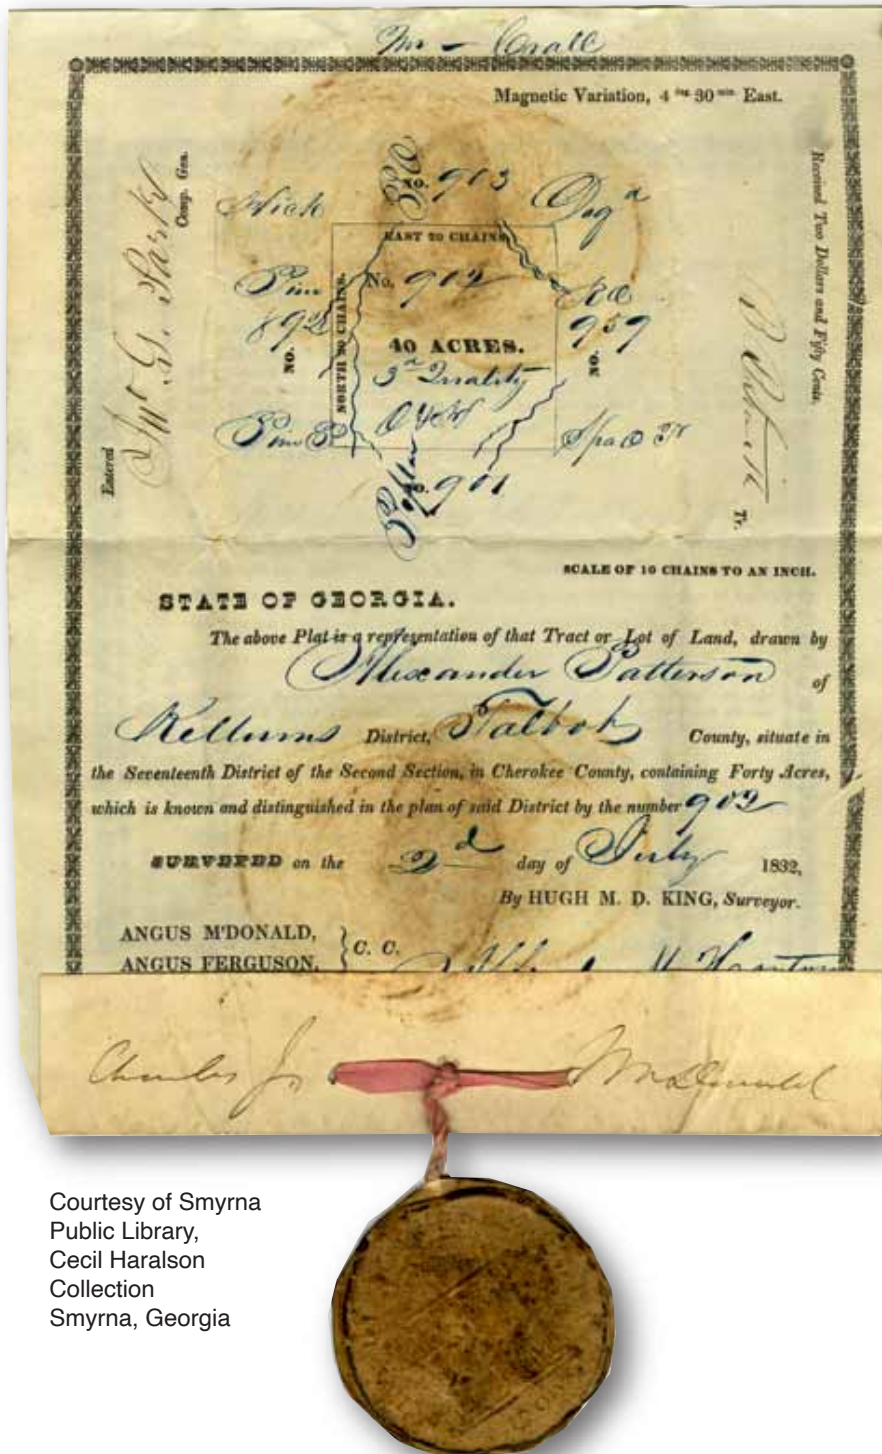 Magnetic Variation, 4 deg 30 min East.
Received Two Dollars and Fifty Cents.
Tr.
Comp. Gen.
Entered
No. 903
EAST 20 CHAINS
NORTH 20 CHAINS.
No. 902
40 ACRES.
3d Quality
NO.
NO. 959
Hick
Pine
Pine
Poplar
No. 901
SCALE OF 10 CHAINS TO AN INCH.
STATE OF GEORGIA.
The above Plat is a representation of that Tract or Lot of Land, drawn by
Alexander Patterson of
Kellums District, Talbot County, situate in
the Seventeenth District of the Second Section, in Cherokee County, containing Forty Acres,
which is known and distinguished in the plan of said District by the number 902
SURVEYED on the 2d day of July 1832,
By HUGH M. D. KING, Surveyor.
ANGUS M'DONALD,
ANGUS FERGUSON, } C. C.
Charles J. McDonald
Courtesy of Smyrna
Public Library,
Cecil Haralson
Collection
Smyrna, Georgia